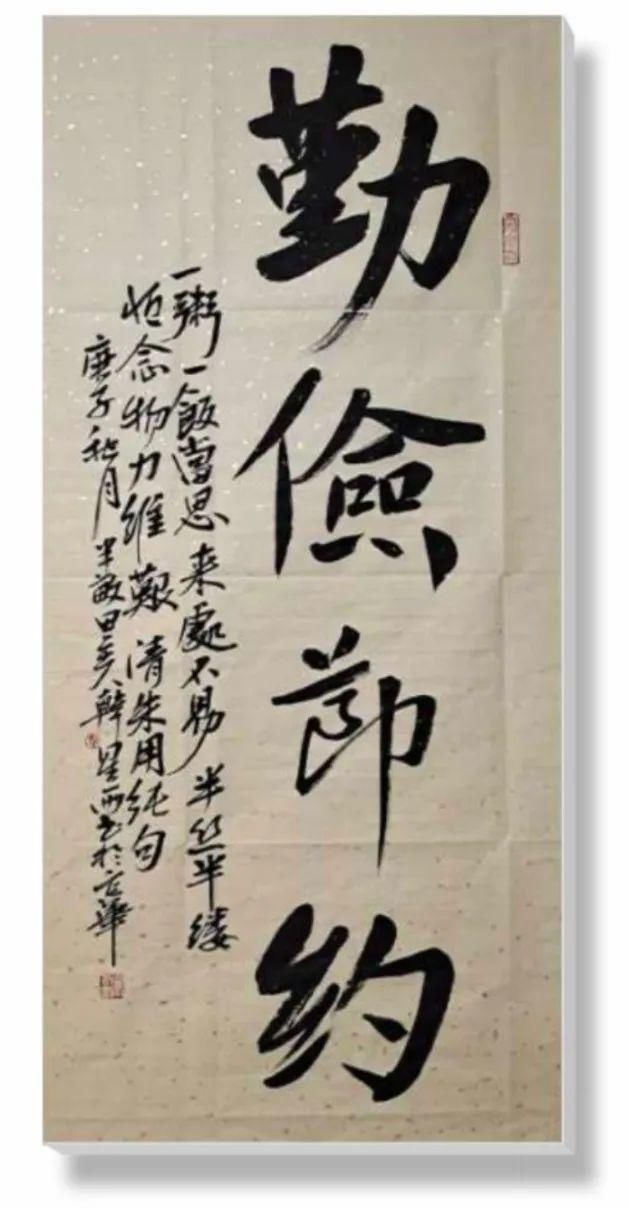 勤儉節約
一粥一飯當思来處不易 半丝半缕
恒念物力維艱 清朱用純句
庚子秋月半畝田叟韓星西書於京華